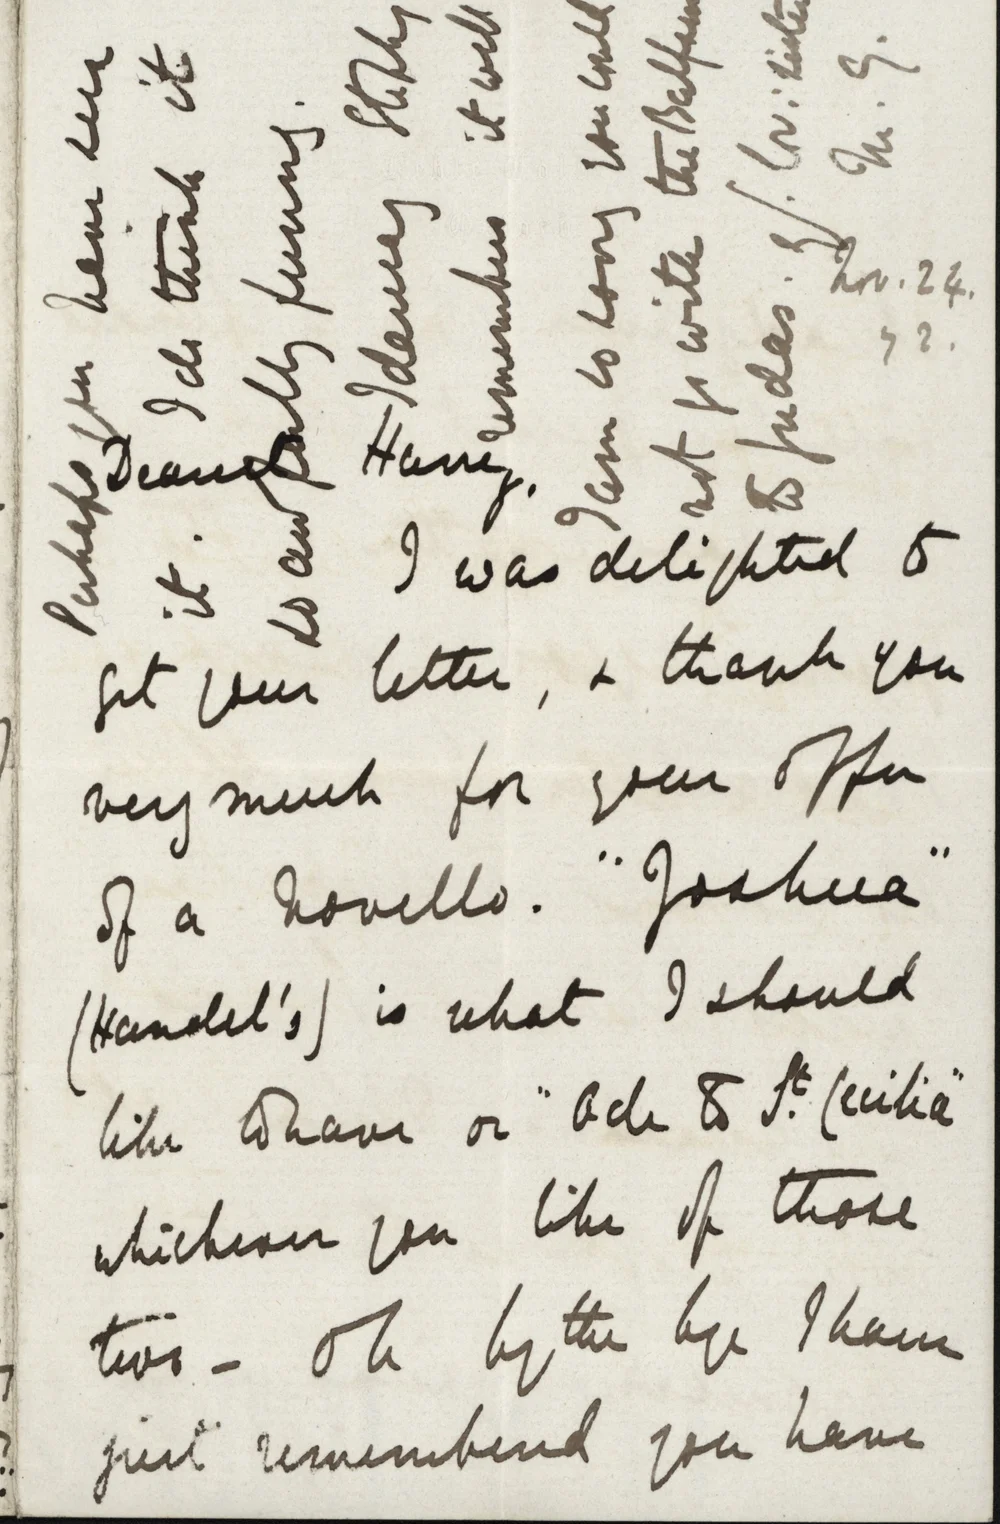 Perhaps you have seen
it. I do think it
so awfully funny.
I daresay Stephy
remembers it well
I am so sorry you could
not go with the Balfours
to Judas.
M. G.
Nov. 24.
72.
Dearest Harry,
I was delighted to
get your letter, & thank you
very much for your offer
of a Novello. "Joshua"
(Handel's) is what I should
like to have or "Ode to St. Cecilia"
whichever you like of those
two - Oh by the bye I have
just remembered you have